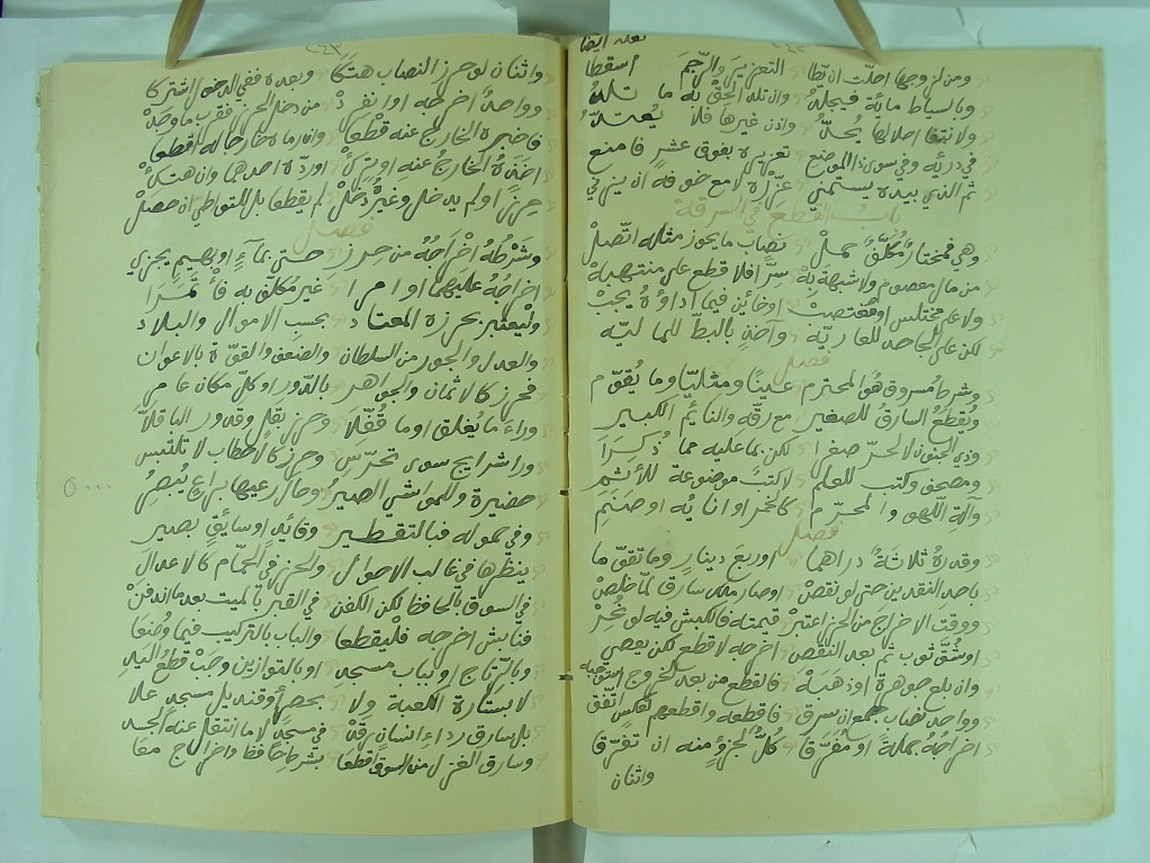 ٢٤٢
بعد ايضا
ومن لزوجها احلّت ان يطا التعزير والرّجم اسقطا
وبالسياط مائة فيجلد وان تلد الحق به ما تلد
ولا انتفا احلالها يُحدّ واذن غيرها فلا يُعتدّ
في درئه وفي سوى ذا الموضع تعزيره بفوق عشرٍ فامنع
ثم الذي بيده يستمني عزّره لا مع خوفه ان يزني
بابُ القطع في السرقة
وهي فمختارٌ مُكلّفٌ حملْ نصاب ما يحوز مثله اتّصلْ
من مال معصوم ولا شبهة بهْ سرّا فلا قطع على منتهبهْ
ولا على مختلس او مغتصبْ او خائن فيما اداؤه يجبْ
لكن على الجاحد للعاريّه وآخذٍ بالبطّ للماليّه
فصل
وشرط مسروق هُوَ المحترم عينًا ومثليّا وما يُقوّم
ويُقطعُ السارقُ للصغير مع رقّه والنائم الكبير
وذي الجنون لا لحرّ صغرا لكن بما عليه مما ذُكِرَا
ومصحف وكتب للعلم لا كتبٌ موضوعة للأثم
وآلةِ اللّهو والمحرّم كالخمر او انائه او صنمِ
فصل
وقدرهُ ثلاثةٌ دراهما او ربعَ دينارٍ وما تقوّما
باحد النقدين حتى لو نقصْ او صار ملك سارق لمّا خلصْ
ووقت الاخراج من الحرز اعتبرْ قيمته فالكبش فيه لو نُحِرْ
او شُقّ ثوب ثم بعد النقص اخرجه لا قطع لكن يعصي
وان بلع جوهرة او ذهبَهْ فالقطع من بعد الخروج استوجبه
وواحد نصاب جمع ان سرق فاقطعه واقطعهم لعكسٍ اتّفق
اخراجُهُ جملةً او مُفَرّقا كُلٌّ لجزؤٍ منه ان تفرّقا
واثنان
٢٤٣
واثنان لو حرز النصاب هتكا وبعده ففي الدخول اشتركا
وواحدٌ اخرجه او انفردْ من دخل الحرز فقرب ما وجدْ
فاجتره الخارج عنه قُطعا وان رماه خارجا له اقطعا
اخذهُ الخارجُ عنه او تركْ او ردّه احدهما وان هتكْ
حرزا ولم يدخل وغيرُهُ دخلْ لم يقطعا بل للتواطي ان حصلْ
فصل
وشَرْطُهُ اخْرَاجُهُ من حرز حتى بمآءٍ او بهيمٍ يجزي
اخراجُهُ عليهما او امرا غير مُكلّف به فأتمرَا
وليُعتبر بحرزه المعتاد بحسبِ الاموال والبلاد
والعدل والجور من السلطان والضعف والقوّة بالاعوان
فحرز كالاثمان والجواهر بالدّور او كلّ مكان عامر
وراءَ ما يُغلق او ما قُفّلا وحرز بقل وقدور الباقلّا
ورا شرايج سوى تحرّس وحرز كالاحطاب لا تلتبس
حضيرة وللمواشي الصيرُ وحال رعيها براعٍ يُبصِرُ
وفي حموله فبالتقطير وقائدٍ او سائقٍ بصير
ينظرها في غالب الاحوال والحرز في الحمّام كالاعدال
في السوق بالحافظ لكن الكفنْ في القبر بالميت بعد ما اندفنْ
فنابش اخرجه فلْيقطعا والباب بالتركيب فيما وُضِعَا
وبالرّتاج او بباب مسجد او بالتوازين وجَبْ قطعُ اليدِ
لا بستارة الكعبة ولا بحصرٍ أو قنديل مسجد علا
بل سارق رداءِ انسان رقدْ في مسجدٍ لا ما انتقل عنه الجسد
وسارق الغزل من السوق اقطعا بشرط حافظا واخراج معا